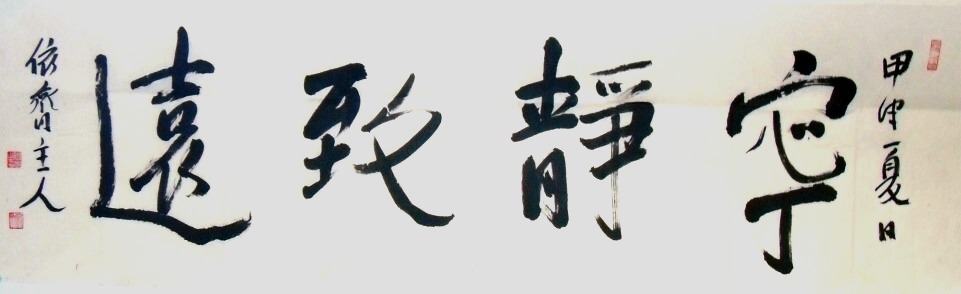 甲申夏日
寧靜致遠
依齋主人